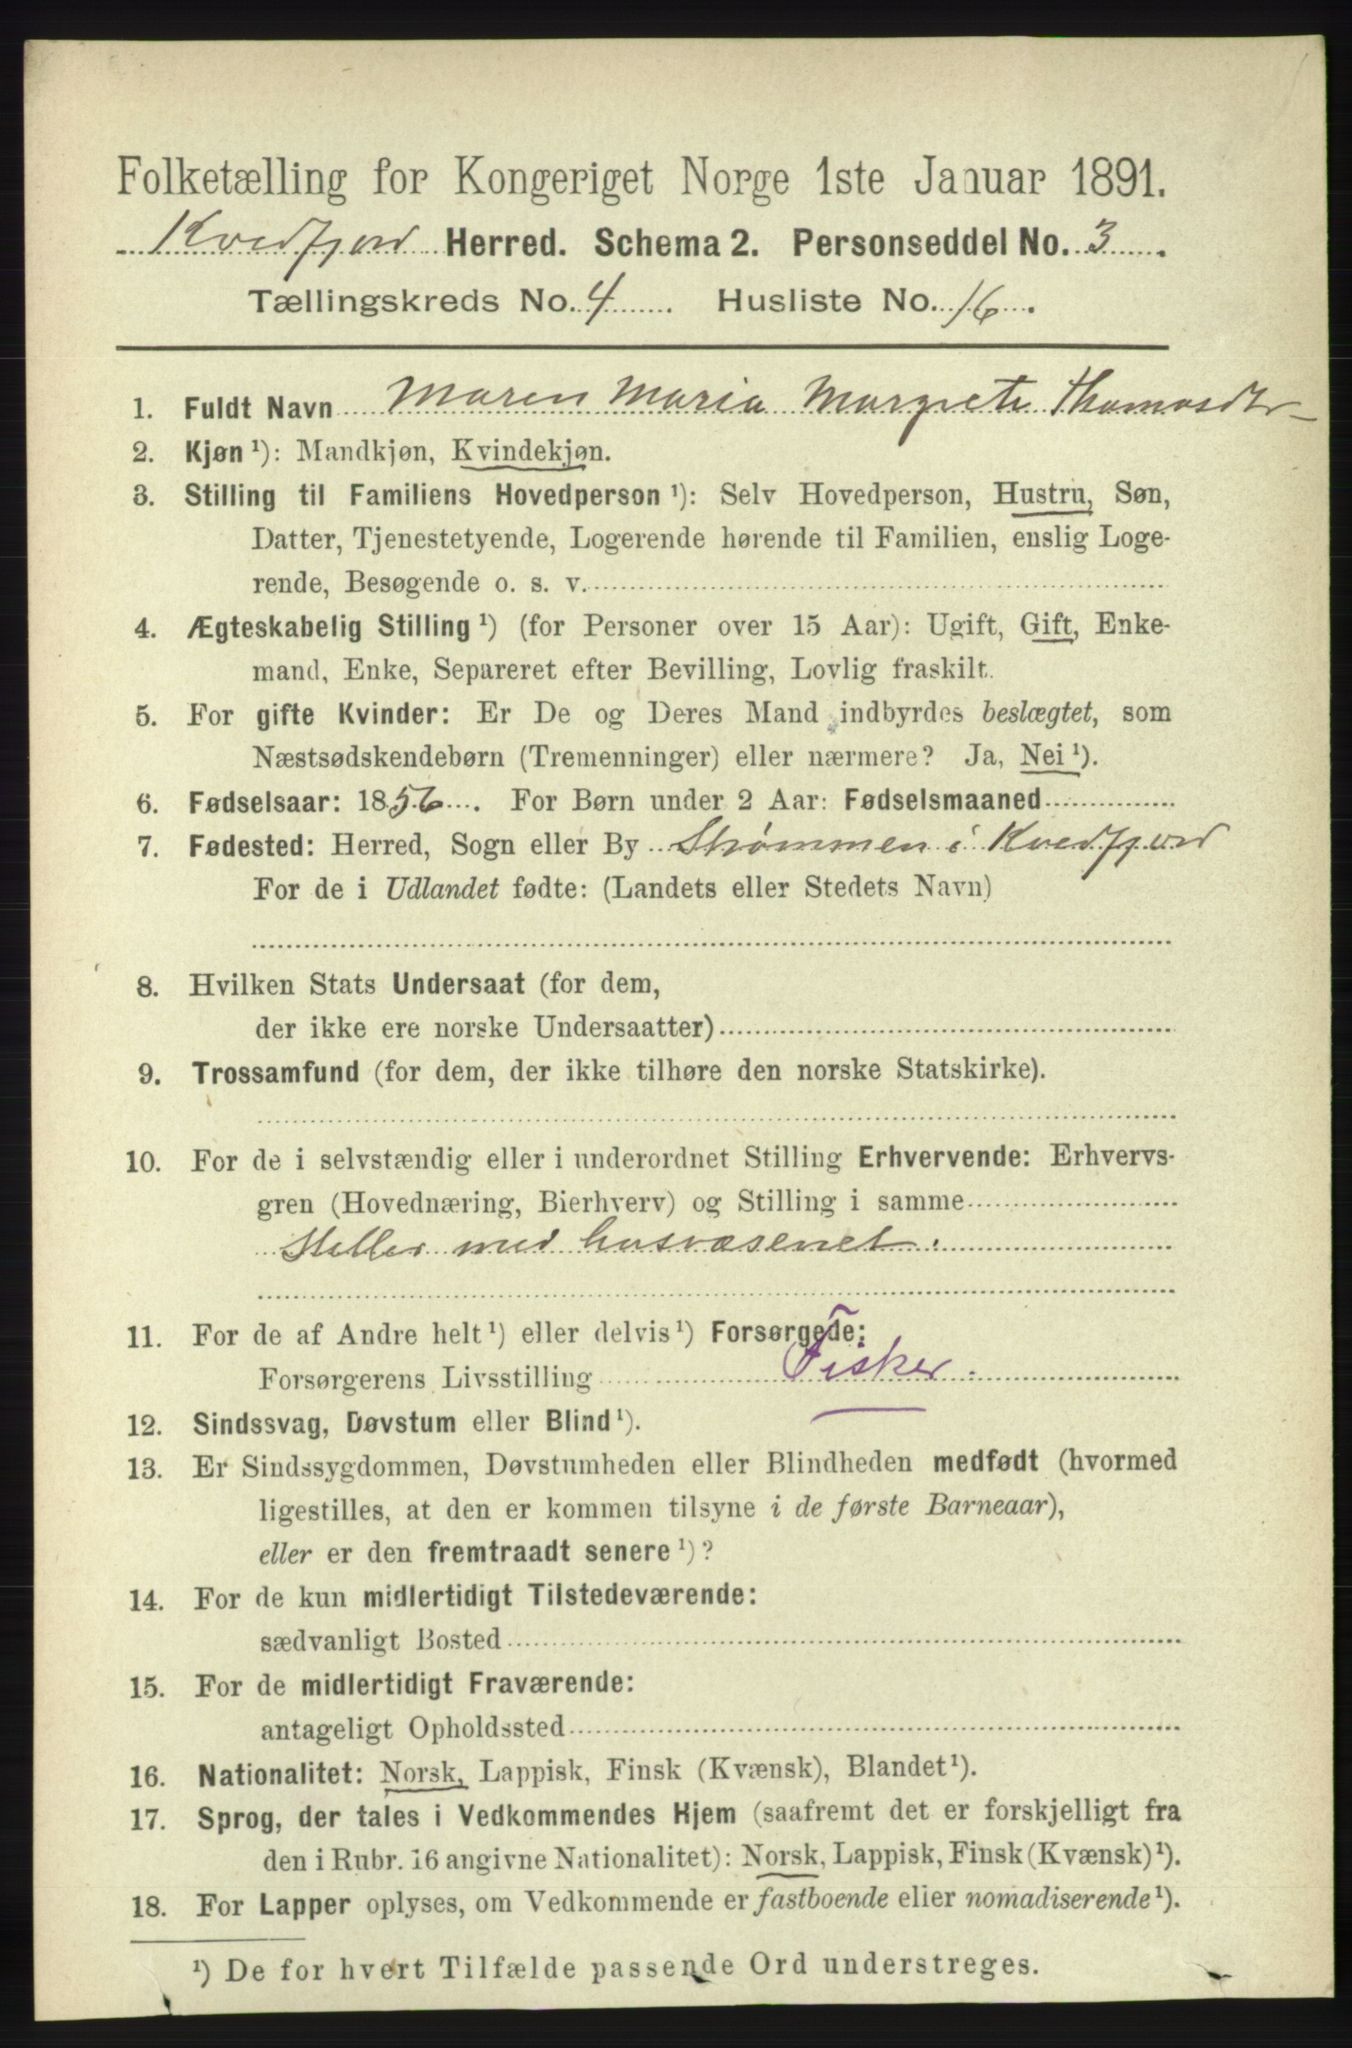 Folketælling for Kongeriget Norge 1ste Januar 1891.
Kvedfjord Herred. Schema 2. Personseddel No. 3
Tællingskreds No. 4. Husliste No. 16.
1. Fuldt Navn Maren Maria Margrete Thomasdtr
2. Kjøn ¹): Mandkjøn, Kvindekjøn.
3. Stilling til Familiens Hovedperson ¹): Selv Hovedperson, Hustru, Søn,
Datter, Tjenestetyende, Logerende hørende til Familien, enslig Loge-
rende, Besøgende o. s. v.
4. Ægteskabelig Stilling ¹) (for Personer over 15 Aar): Ugift, Gift, Enke-
mand, Enke, Separeret efter Bevilling, Lovlig fraskilt.
5. For gifte Kvinder: Er De og Deres Mand indbyrdes beslægtet, som
Næstsødskendebørn (Tremenninger) eller nærmere? Ja, Nei ¹).
6. Fødselsaar: 1856. For Børn under 2 Aar: Fødselsmaaned
7. Fødested: Herred, Sogn eller By Strømmen i Kvedfjord
For de i Udlandet fødte: (Landets eller Stedets Navn)
8. Hvilken Stats Undersaat (for dem,
der ikke ere norske Undersaatter)
9. Trossamfund (for dem, der ikke tilhøre den norske Statskirke).
10. For de i selvstændig eller i underordnet Stilling Erhvervende: Erhvervs-
gren (Hovednæring, Bierhverv) og Stilling i samme
Steller med husvæsenet.
11. For de af Andre helt ¹) eller delvis ¹) Forsørgede:
Forsørgerens Livsstilling Fisker.
12. Sindssvag, Døvstum eller Blind ¹).
13. Er Sindssygdommen, Døvstumheden eller Blindheden medfødt (hvormed
ligestilles, at den er kommen tilsyne i de første Barneaar),
eller er den fremtraadt senere ¹)?
14. For de kun midlertidigt Tilstedeværende:
sædvanligt Bosted
15. For de midlertidigt Fraværende:
antageligt Opholdssted
16. Nationalitet: Norsk, Lappisk, Finsk (Kvænsk), Blandet ¹).
17. Sprog, der tales i Vedkommendes Hjem (saafremt det er forskjelligt fra
den i Rubr. 16 angivne Nationalitet): Norsk, Lappisk, Finsk (Kvænsk) ¹).
18. For Lapper oplyses, om Vedkommende er fastboende eller nomadiserende ¹).
¹) De for hvert Tilfælde passende Ord understreges.